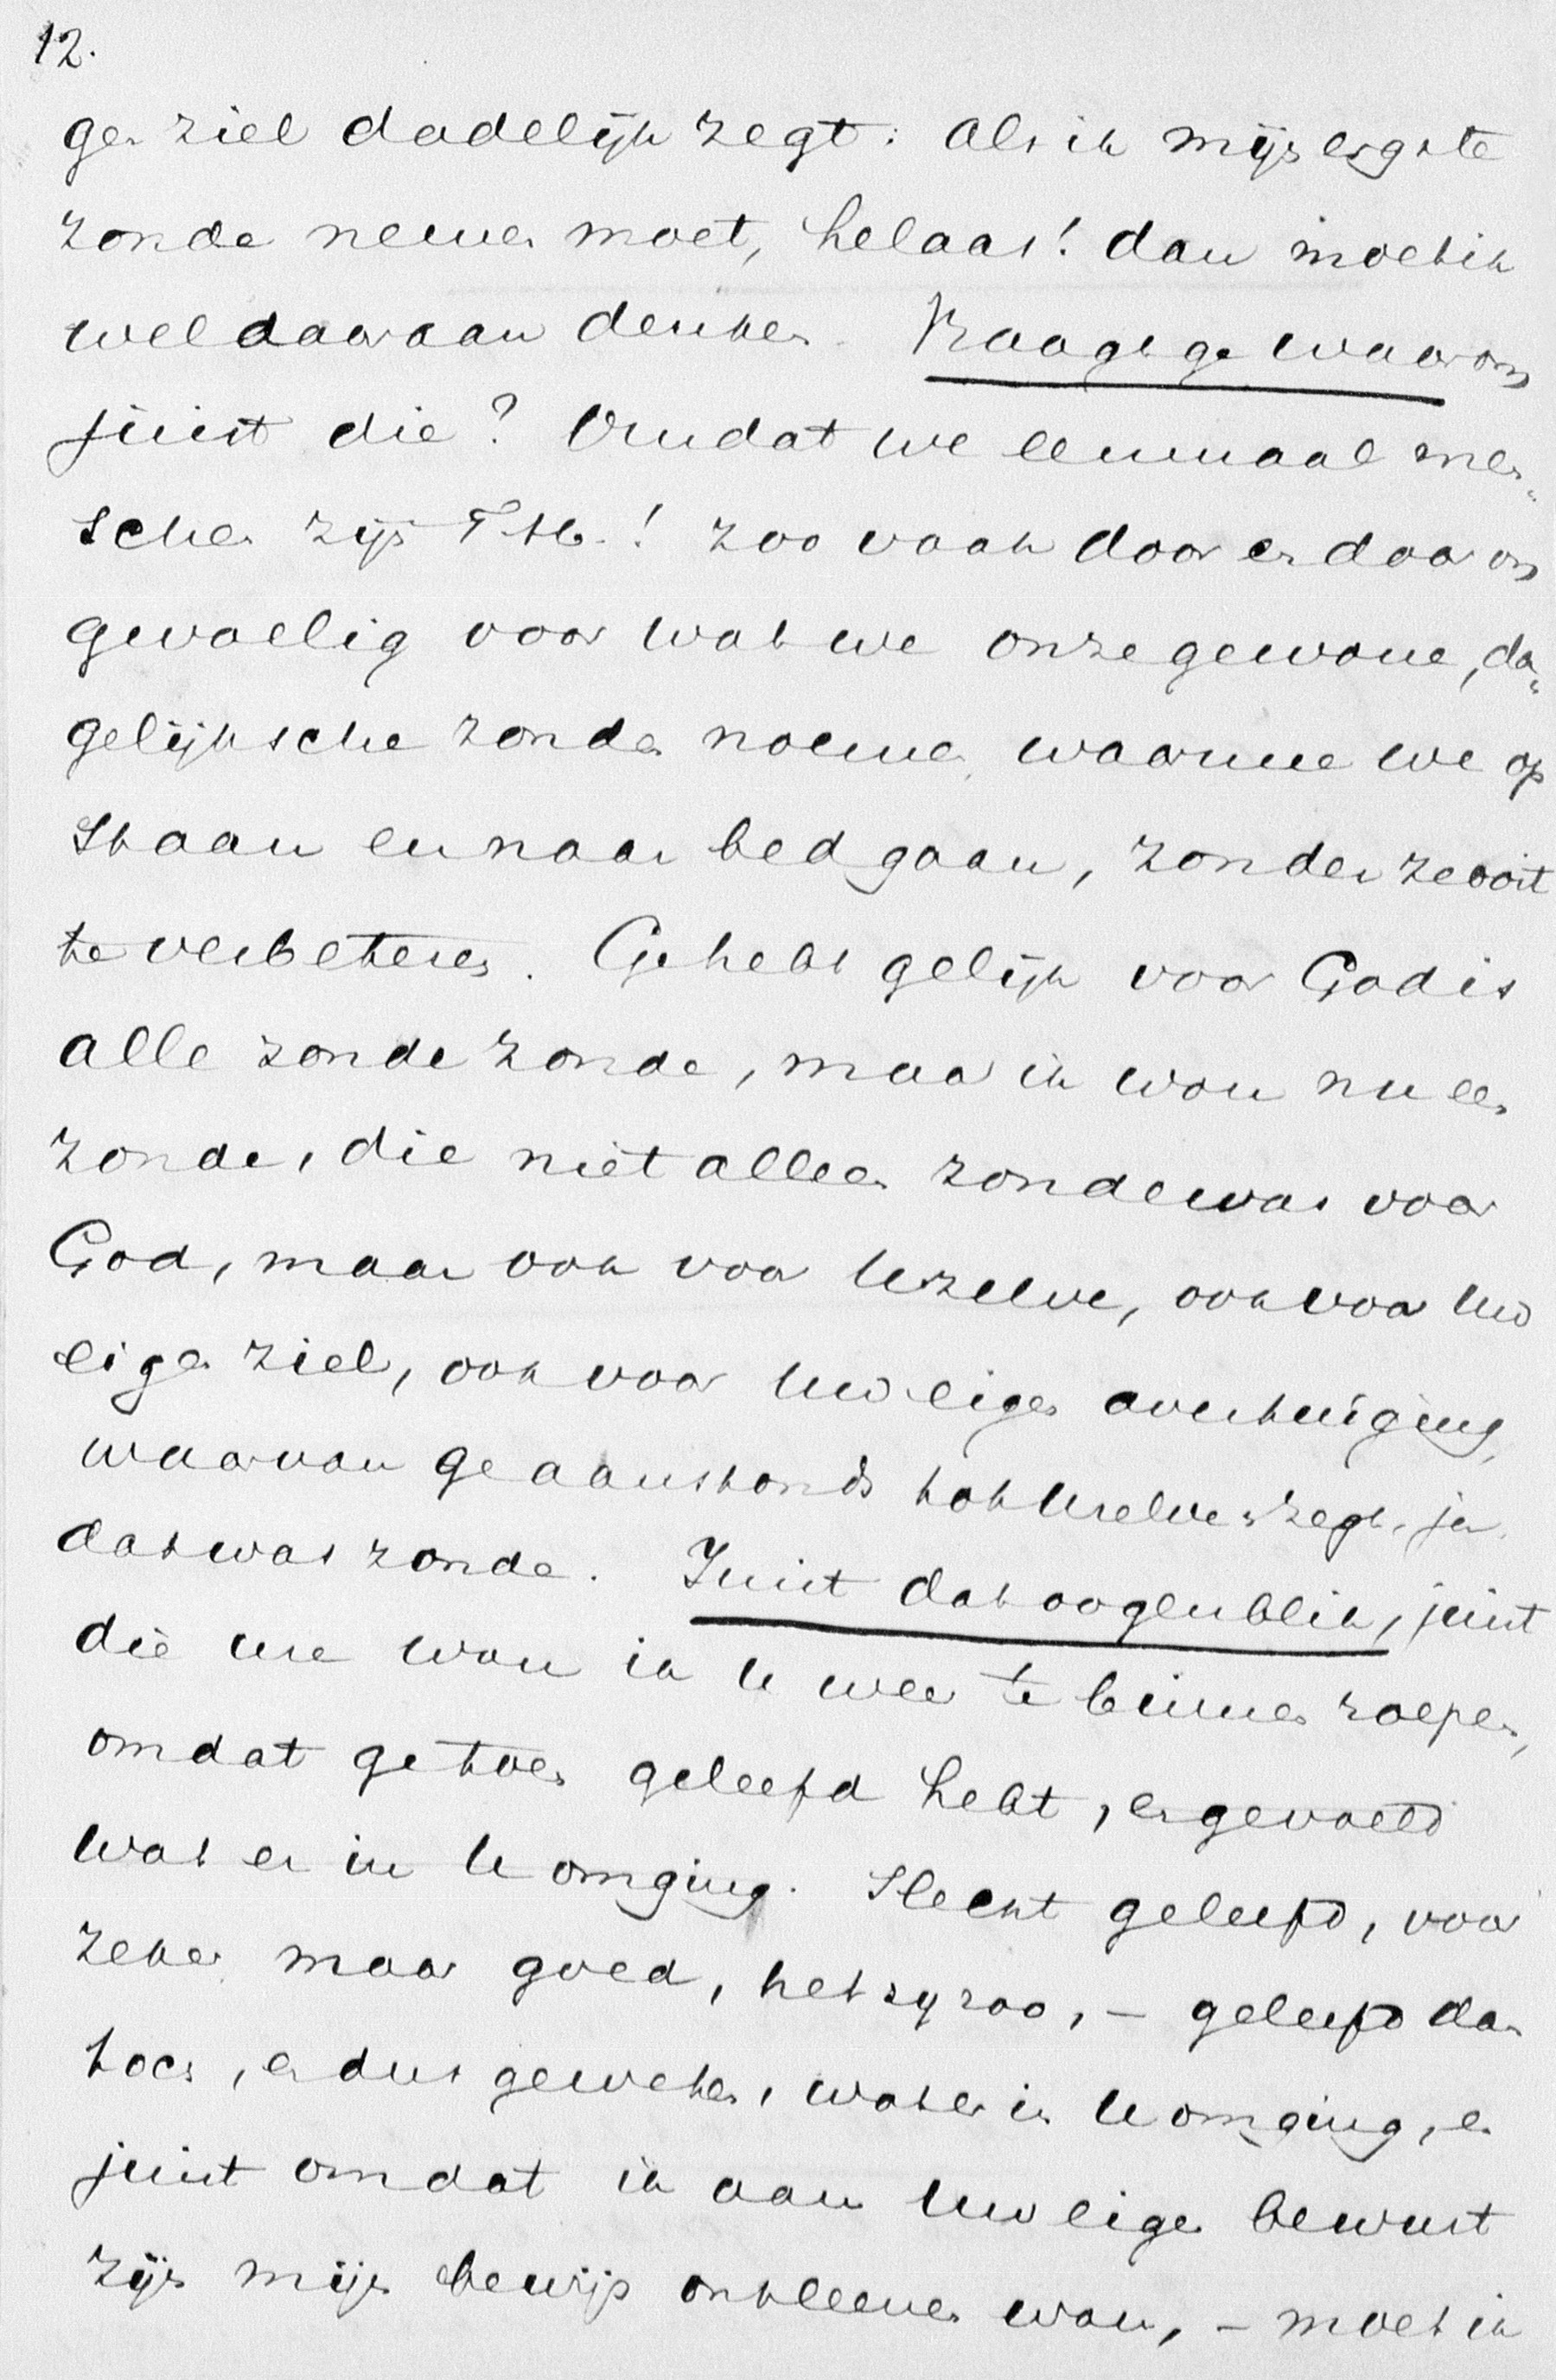 12.
gen ziel dadelijk zegt: als ik mijn ergste
zonde nemen moet, helaas! dan moet ik
wel daaraan denken. Vraagt ge waarom
juist die? Omdat we eenmaal men„
schen zijn T. H.! zoo vaak door en door on
gevoelig voor wat we onze gewone, da„
gelijksche zonden noemen, waarmee we op
staan en naar bed gaan, zonder ze ooit
te verbeteren. Ge hebt gelijk voor God is
alle zonde zonde, maar ik wou nu een
zonde, die niet alleen zonde was voor
God, maar ook voor Uzelve, ook voor Uw
eigen ziel, ook voor Uw eigen overtuiging,
waarvan ge aanstonds tot Uzelven zegt, ja,
dat was zonde. Juist dat oogenblik, juist
die ure wou ik U weer te binnen roepen,
omdat ge toen geleefd hebt, en gevoeld
wat er in U omging. Slecht geleefd, voor
zeker maar goed, het zij zoo, – geleefd dan
toch, en dus geweten, wat er in U omging, en
juist omdat ik aan Uw eigen bewust
zijn mijn bewijs ontleenen wou, – moet ik